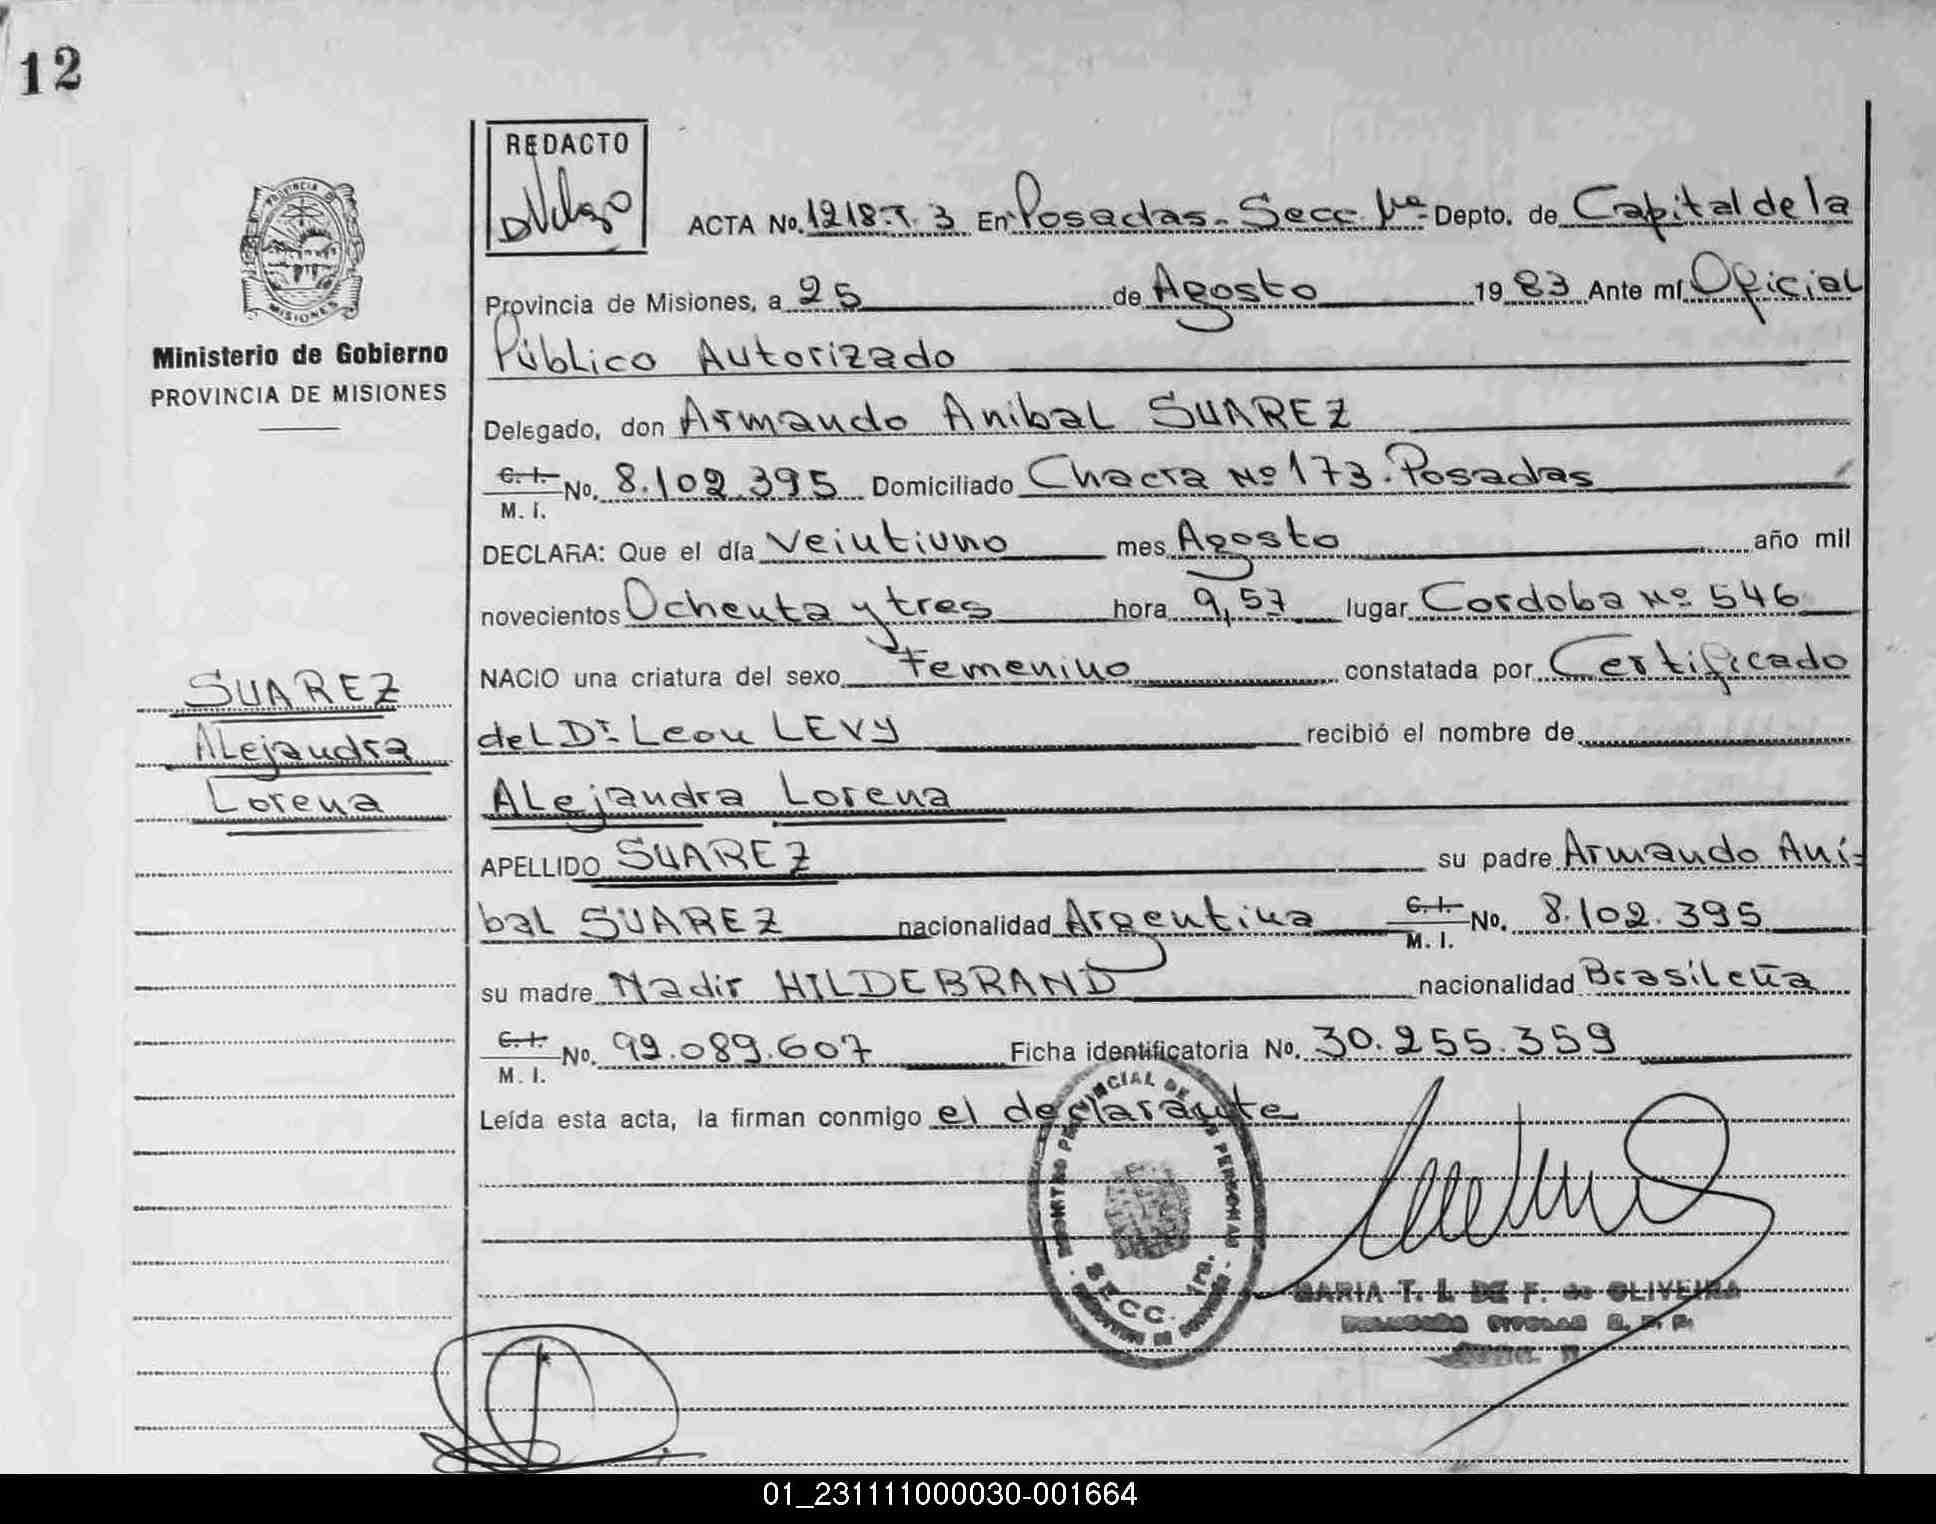 12
REDACTO
ACTA No. 1218.T. 3 En Posadas - Secc. 1ra Depto. de Capital de la
PROVINCIA DE
MISIONES
Provincia de Misiones, a 25 de Agosto 1983 Ante mí Oficial
Ministerio de Gobierno
Público Autorizado
PROVINCIA DE MISIONES
Delegado, don Armando Anibal SUAREZ
C. I. No. 8.102.395 Domiciliado Chacra Nº 173. Posadas
M. I.
DECLARA: Que el día Veintiuno mes Agosto año mil
novecientos Ochenta y tres hora 9,57 lugar Cordoba Nº 546
NACIO una criatura del sexo Femenino constatada por Certificado
SUAREZ
del Dr. Leon LEVY recibió el nombre de
Alejandra
Alejandra Lorena
Lorena
APELLIDO SUAREZ su padre Armando Aní-
bal SUAREZ nacionalidad Argentina C. I. No. 8.102.395
M. I.
su madre Nadir HILDEBRAND nacionalidad Brasileña
C. I. No. 92.089.607 Ficha identificatoria No. 30.255.359
M. I.
Leída esta acta, la firman conmigo el declarante
REGISTRO PROVINCIAL DE LAS PERSONAS
SECC. 1ra.
MARIA T. I. DE F. de OLIVEIRA
01_231111000030-001664